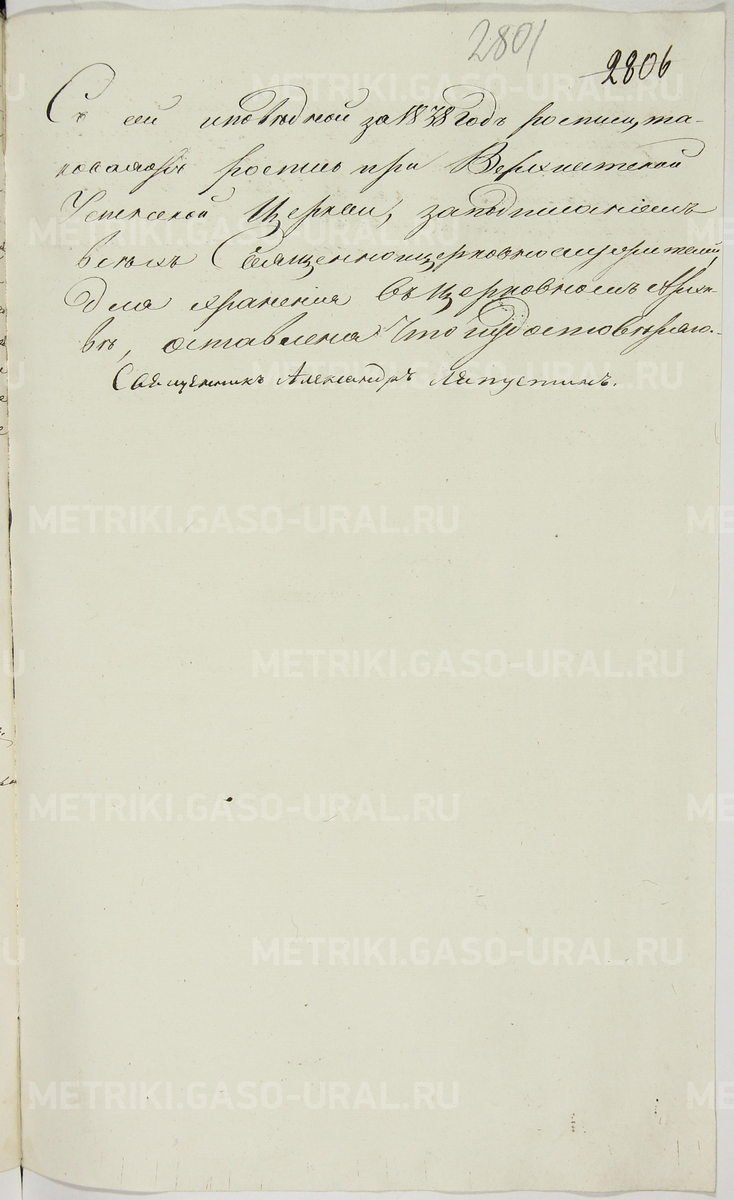 2801
2806
Съ сей исповѣдной за 1838 годъ росписи, та-
коваяжъ роспись при
Успенской Церкви, за подписаніемъ
всѣхъ Священноцерковнослужителей
для храненія въ Церковномъ Архи-
вѣ, оставлена что и удостовѣряю.
Священникъ Александръ Ляпустинъ.
METRIKI.GASO-URAL.RU